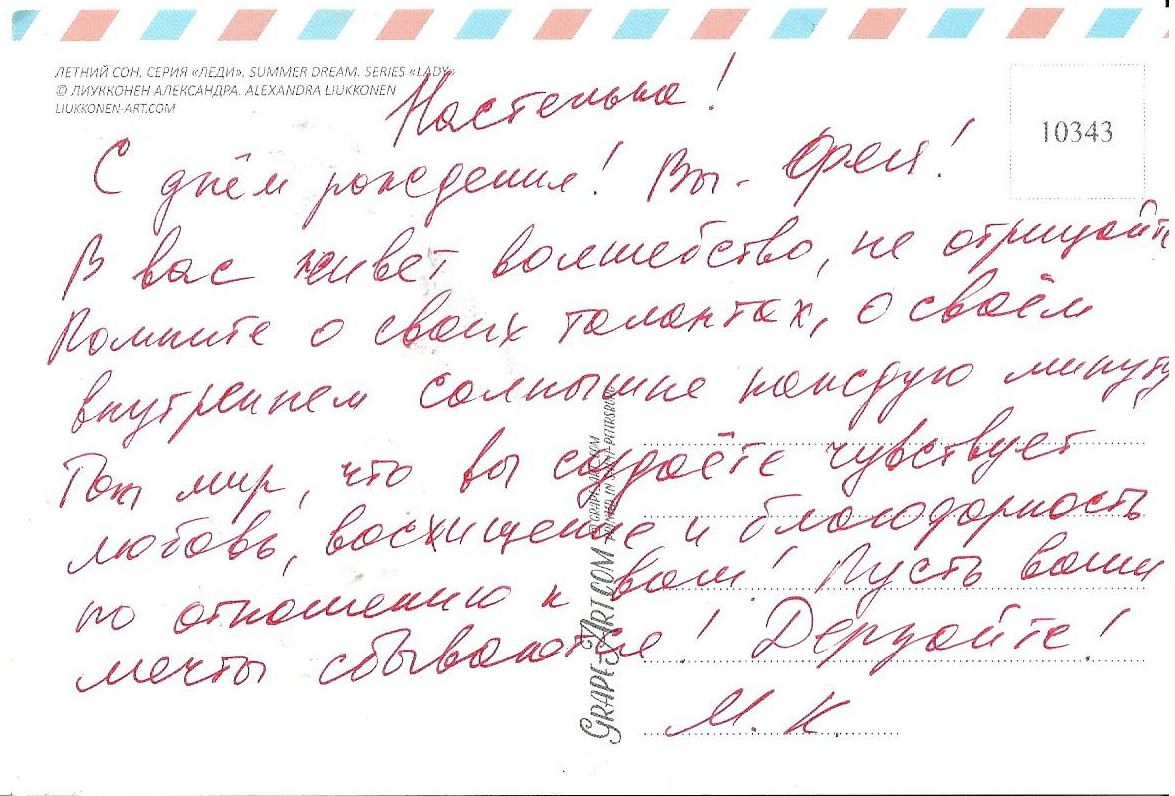 ЛЕТНИЙ СОН. СЕРИЯ «ЛЕДИ». SUMMER DREAM. SERIES «LADY»
© ЛИУККОНЕН АЛЕКСАНДРА. ALEXANDRA LIUKKONEN
LIUKKONEN-ART.COM
10343
Настенька!
С днём рождения! Вы - Фея!
В вас живёт волшебство, не отрицайте
Помните о своих талантах, о своём
внутреннем солнышке каждую минуту
Тот мир, что вы создаёте чувствует
любовь, восхищение и благодарность
по отношению к вам! Пусть ваши
мечты сбываются! Дерзайте!
М. К.
GRAPE-ART.COM
© GRAPE-ART.COM
PRINTED IN SAINT-PETERSBURG